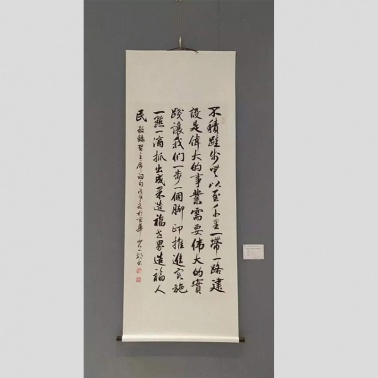 不積跬步無以至千里一帶一路建
設是偉大的事業需要偉大的實
踐讓我们一步一個腳印推進實施
一點一滴抓出成果造福世界造福人
民